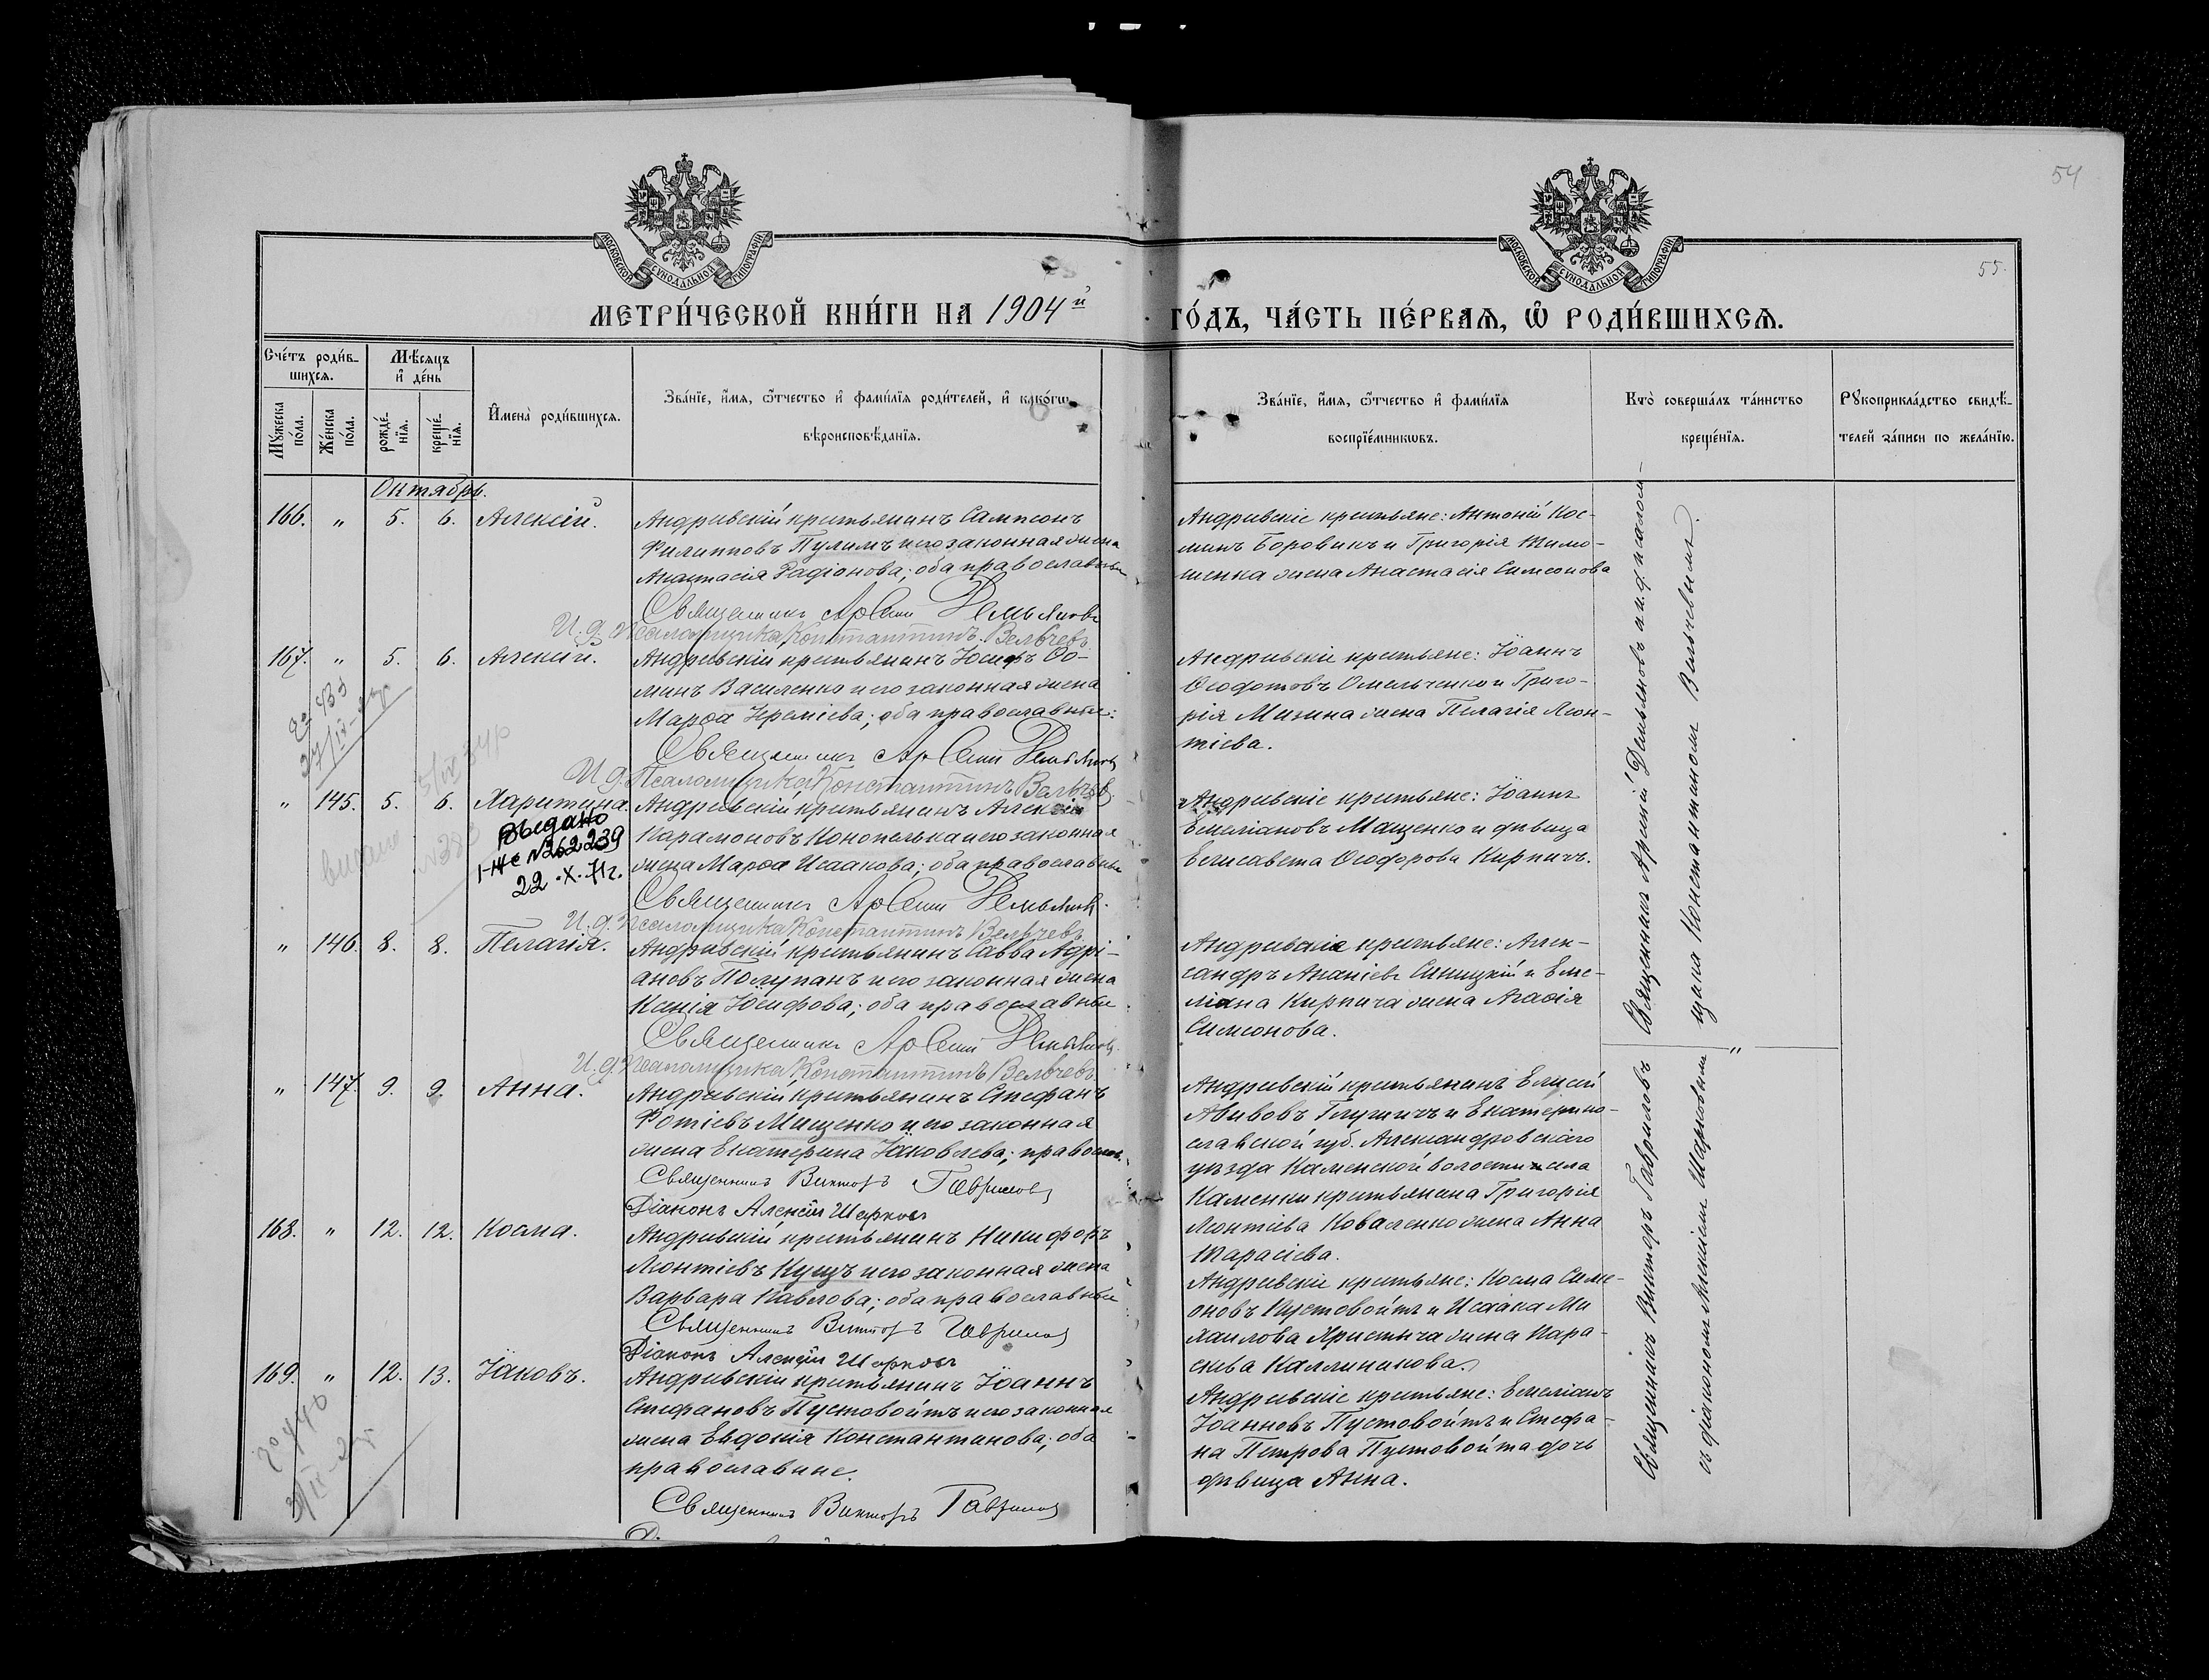 54
55.
МОСКОВСКОЙ СѴНОДАЛЬНОЙ ТИПОГРАФІИ
МОСКОВСКОЙ СѴНОДАЛЬНОЙ ТИПОГРАФІИ
МЕТРИ́ЧЕСКОЙ КНИ́ГИ НА 1904й ГО́ДЪ, ЧА́СТЬ ПЕ́РВАѦ, Ѡ҆ РОДИ́ВШИХСѦ.
Сче́тъ роди́в-
шихсѧ.
Мꙋ́жеска по́ла.
Же́нска по́ла.
Мѣ́сѧцъ
и҆ де́нь
рожде́-
нїѧ.
креще́-
нїѧ.
И҆мена̀ роди́вшихсѧ.
Зва́нїе, и҆́мѧ, ѻ҆́тчество и҆ фами́лїѧ роди́телей, и҆ како́гѡ
вѣроисповѣ́данїѧ.
Зва́нїе, и҆́мѧ, ѻ҆́тчество и҆ фами́лїѧ
воспрїе́мникѡвъ.
Кто̀ соверша́лъ та́инство
креще́нїѧ.
Рꙋкоприкла́дство свидѣ́-
телей за́писи по жела́нїю.
Октябрь.
166. " 5. 6. Алексій.
Андреевскій крестьянинъ Сампсонъ
Филипповъ Пулимъ и его законная жена
Анастасія Радіонова; оба православные
Священникъ Арсеній Демьяновъ
И. д. Псаломщика Константинъ Вельчевъ
Андреевскіе крестьяне: Антоній Кос-
минъ Боровикъ и Григорія Тимо-
шенка жена Анастасія Симеонова
167. " 5. 6. Алексій.
Андреевскій крестьянинъ Іосифъ Ѳо-
минъ Василенко и его законная жена
Марѳа Іереміева; оба православные.
Священникъ Арсеній Демьяновъ
И. д. Псаломщика Константинъ Вельчевъ
Андреевскіе крестьяне: Іоаннъ
Ѳеодотовъ Омельченко и Григо-
рія Мизина жена Пелагія Леон-
тіева.
" 145. 5. 6. Харитина.
видано
Выдано
І-НС №262239
22.X.71г.
Андреевскій крестьянинъ Алексій
Харамоновъ Конопелька и его законная
жена Марѳа Исаакова; оба православные
Священникъ Арсеній Демьяновъ
И. д. Псаломщика Константинъ Вельчевъ
Андреевскіе крестьяне: Іоаннъ
Емеліановъ Мащенко и дѣвица
Елисавета Ѳеодорова Кирпичъ.
" 146. 8. 8. Пелагія.
Андреевскій крестьянинъ Савва Адрі-
ановъ Полупанъ и его законная жена
Ксенія Іосифова; оба православные
Священникъ Арсеній Демьяновъ
И. д. Псаломщика Константинъ Вельчевъ
Андреевскіе крестьяне: Алек-
сандръ Ананіевъ Синицкій и Еме-
ліана Кирпича жена Агаѳія
Симеонова.
" 147. 9. 9. Анна.
Андреевскій крестьянинъ Стефанъ
Фотіевъ Мищенко и его законная
жена Екатерина Іаковлева; православ.
Священникъ Викторъ Гавриловъ
Діаконъ Алексій Шарковъ
Андреевскій крестьянинъ Елисей
Авивовъ и Екатерино-
славской губ. Александровскаго
уѣзда Каменской волости села
Каменки крестьянина Григорія
Леонтіева Коваленко жена Анна
Тарасіева.
168. " 12. 12. Косма.
Андреевскій крестьянинъ Никифоръ
Леонтіевъ Кущъ и его законная жена
Варвара Павлова; оба православные
Священникъ Викторъ Гавриловъ
Діаконъ Алексій Шарковъ
Андреевскіе крестьяне: Косма Симе-
оновъ Пустовойтъ и Исаака Ми
хаилова Христича жена Пара-
скева Каллиникова.
169. " 12. 13. Іаковъ.
Андреевскій крестьянинъ Іоаннъ
Стефановъ Пустовойтъ и его законная
жена Евдокія Константинова; оба
православные.
Священникъ Викторъ Гавриловъ
Андреевскіе крестьяне: Емеліанъ
Іоанновъ Пустовойтъ и Стефа-
на Петрова Пустовойта дочь
дѣвица Анна.
Священникъ Арсеній Демьяновъ и и. д. псалом-
щика Константиномъ Вельчевымъ.
Священникъ Викторъ Гавриловъ
съ діакономъ Алексіемъ Шарковымъ